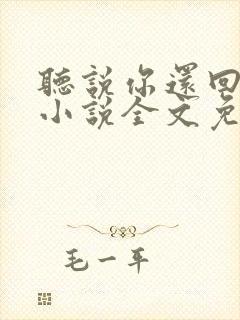 聽說你還回
小說全文免
毛一平